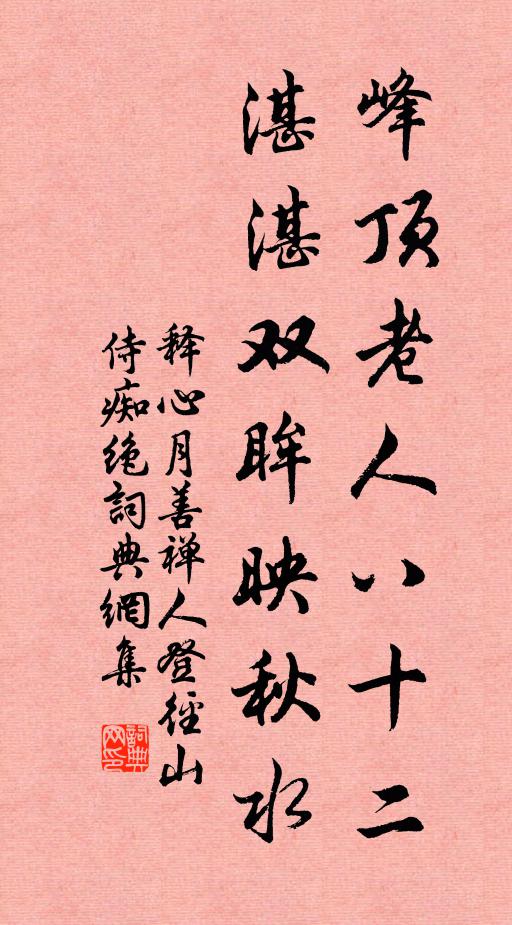 峰顶老人八十二
湛湛双眸映秋水
释心月善禅人登径山
侍痴绝詞典網集
詞典网印